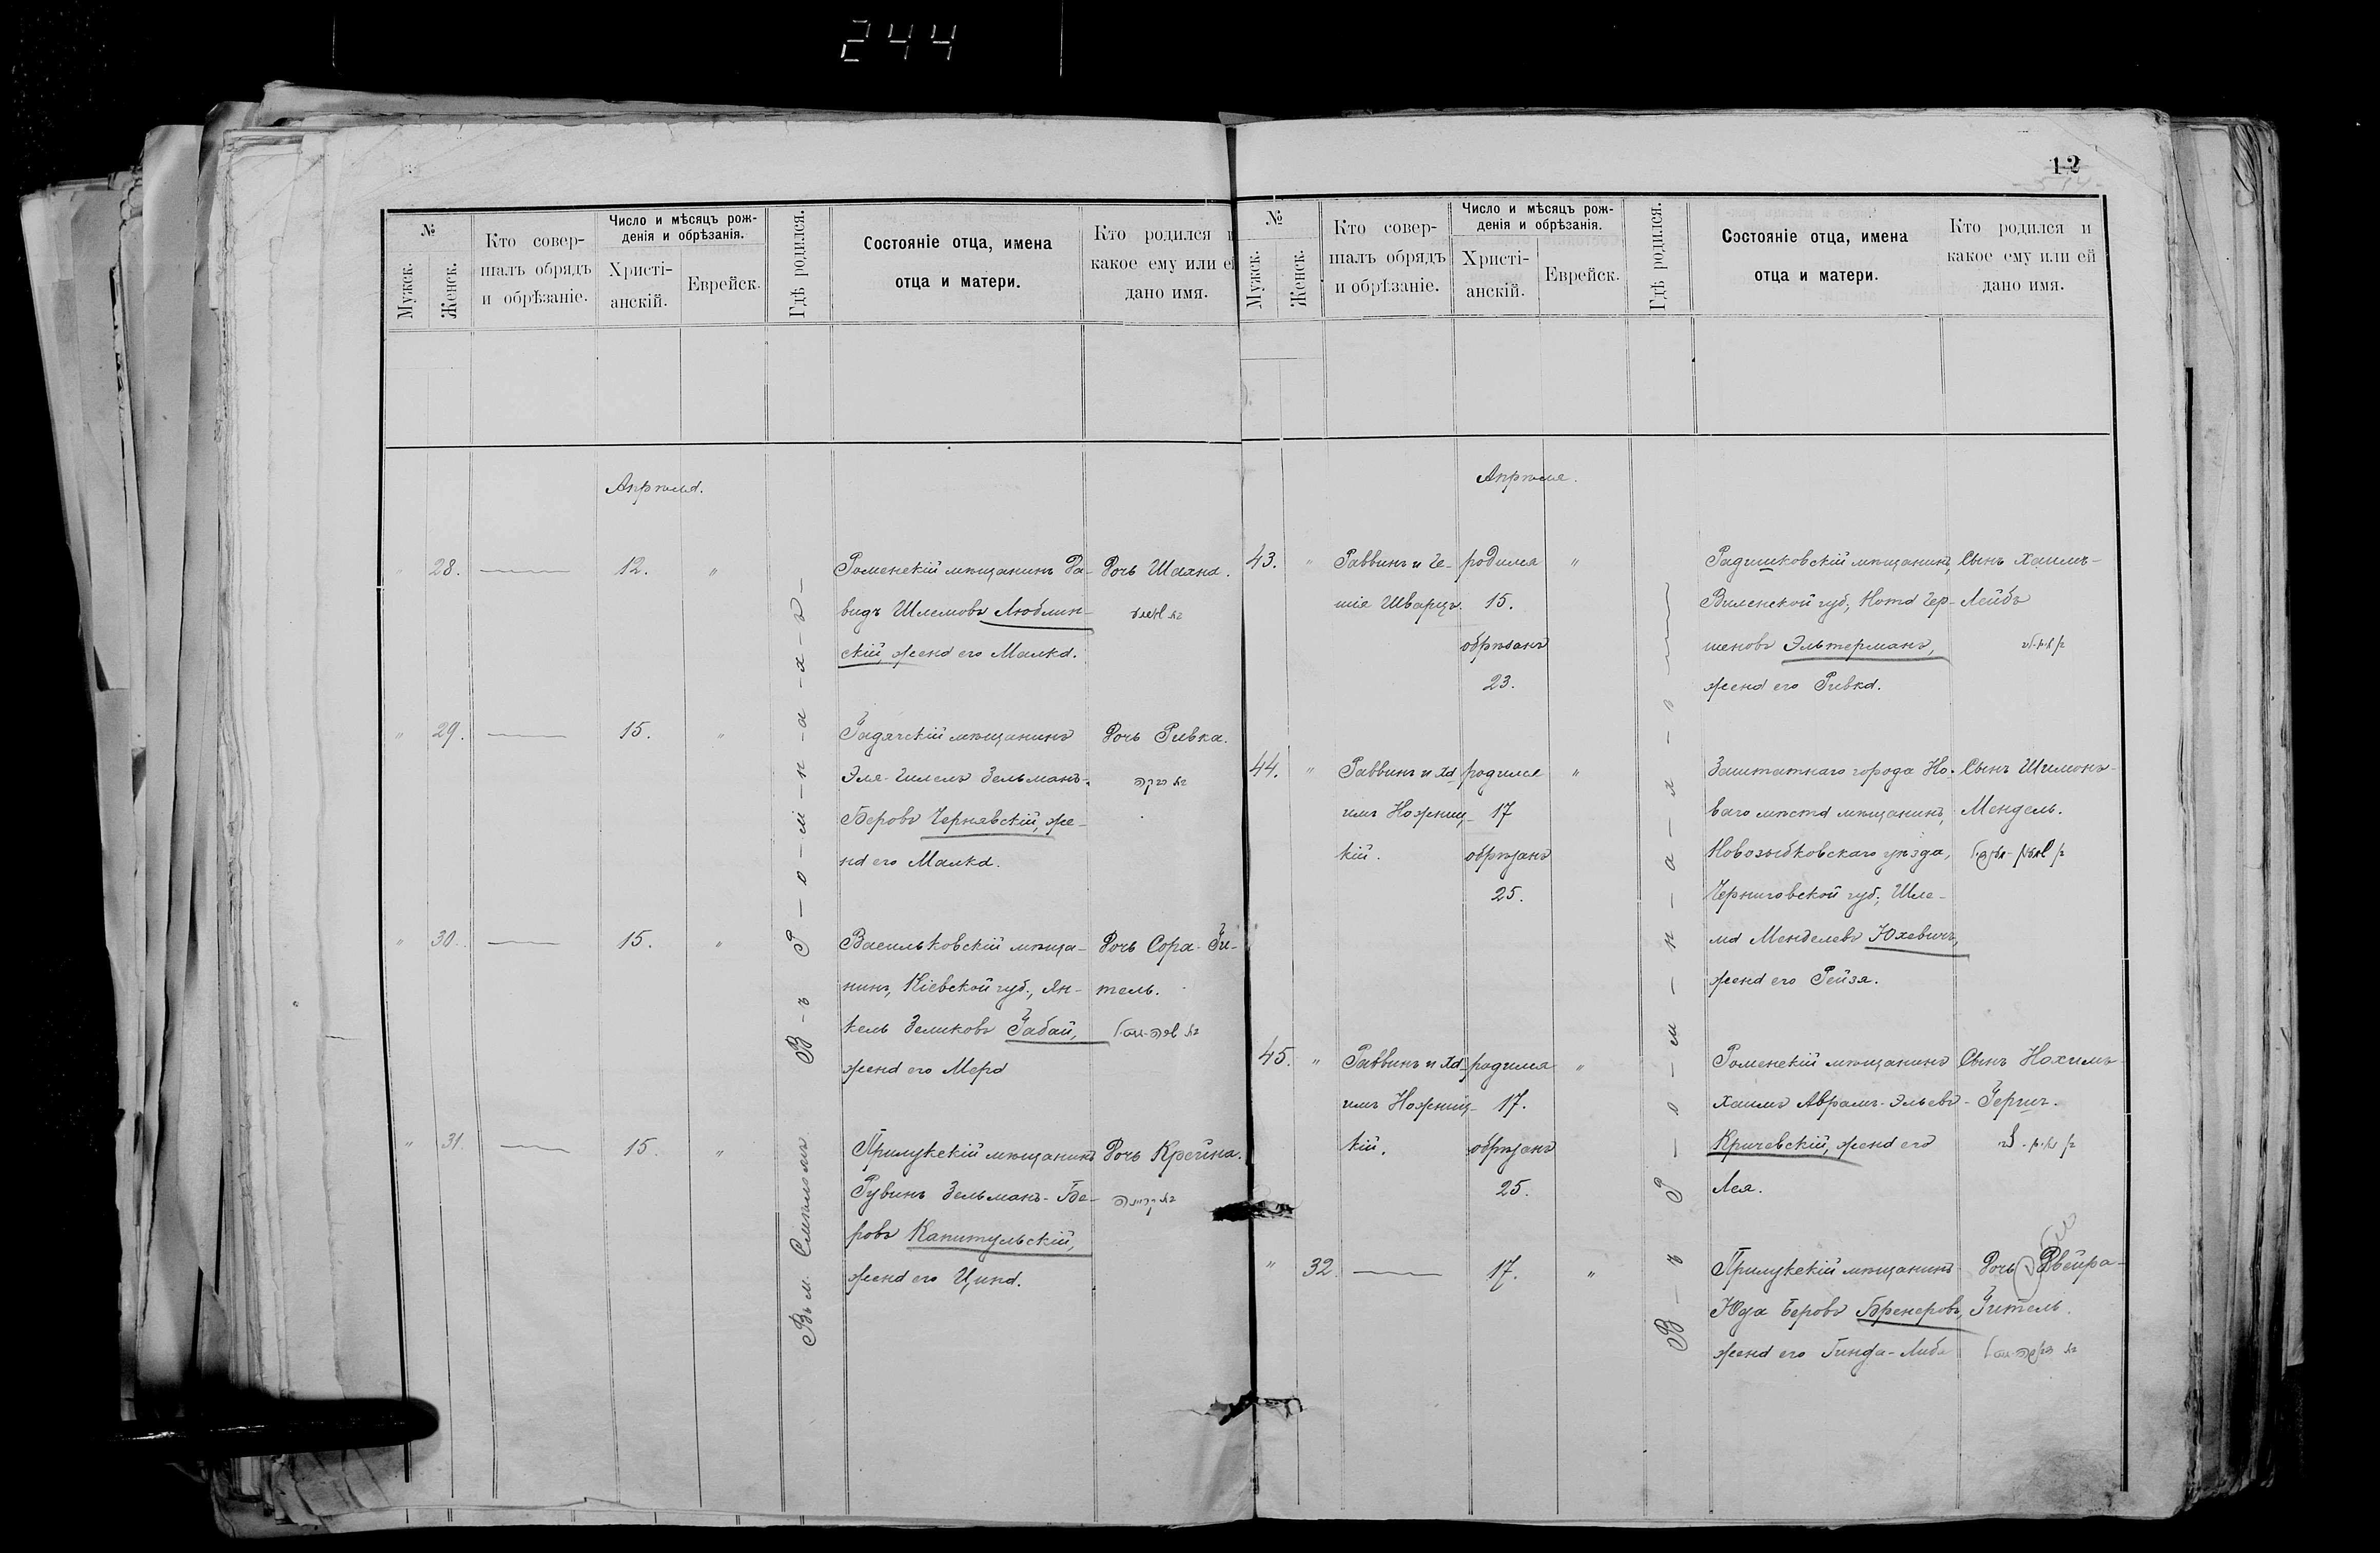 244
12
№
Мужск.
Женск.
Кто совер-
шалъ обрядъ
и обрѣзаніе.
Число и мѣсяцъ рож-
денія и обрѣзанія.
Христі-
анскій.
Еврейск.
Гдѣ родился.
Состояніе отца, имена
отца и матери.
Кто родился и
какое ему или ей
дано имя.
Апрѣля.
В-ъ Р-о-м-н-а-х-ъ
Въ м. Смѣломъ
28.
12.
"
Роменскій мѣщанинъ Да-
видъ Шлемовъ Люблин-
скій, жена его Малка.
Дочь Шаяна.
"
29.
15.
"
Гадячскій мѣщанинъ
Эля-Гилель Зельманъ-
Беровъ Чернявскій, же-
на его Малка.
Дочь Ривка.
בת רבקה
"
30.
15.
"
Васильковскій мѣща-
нинъ, Кіевской губ., Ян-
кель Зеликовъ Габай,
жена его Мера
Дочь Сора-Ги-
тель.
בת שרה-גיטל
"
31.
15.
"
Прилукскій мѣщанинъ
Рувинъ Зельманъ-Бе-
ровъ Капитульскій,
жена его Цина.
Дочь Крейна.
בת קריינה
№
Мужск.
Женск.
Кто совер-
шалъ обрядъ
и обрѣзаніе.
Число и мѣсяцъ рож-
денія и обрѣзанія.
Христі-
анскій.
Еврейск.
Гдѣ родился.
Состояніе отца, имена
отца и матери.
Кто родился и
какое ему или ей
дано имя.
Апрѣля.
В-ъ Р-о-м-н-а-х-ъ
43.
"
Раввинъ и Ге-
шія Шварцъ.
родился
15.
обрѣзанъ
23.
"
Радишковскій мѣщанинъ,
Виленской губ., Нота Гер-
шеновъ Эльтерманъ,
жена его Ривка.
Сынъ Хаимъ-
Лейбъ
44.
"
Раввинъ и Ха-
имъ Ножниц-
кій.
родился
17
обрѣзанъ
25.
"
Заштатнаго города Но-
ваго мѣста мѣщанинъ,
Новозыбковскаго уѣзда,
Черниговской губ., Шле-
ма Менделевъ Юхевичъ,
жена его Рейзя.
Сынъ Шимонъ-
Мендель.
בן שמעון-מענדיל
45.
"
Раввинъ и Ха-
имъ Ножниц-
кій.
родился
17.
обрѣзанъ
25.
"
Роменскій мѣщанинъ
Хаимъ Аврамъ-Эльевъ
Кричевскій, жена его
Лея.
Сынъ Нохимъ-
Герш.
"
32.
17.
"
Прилукскій мѣщанинъ
Юда Беровъ Бренеровъ,
жена его Гинда-Либа
Дочь Двейра-
Гитель.